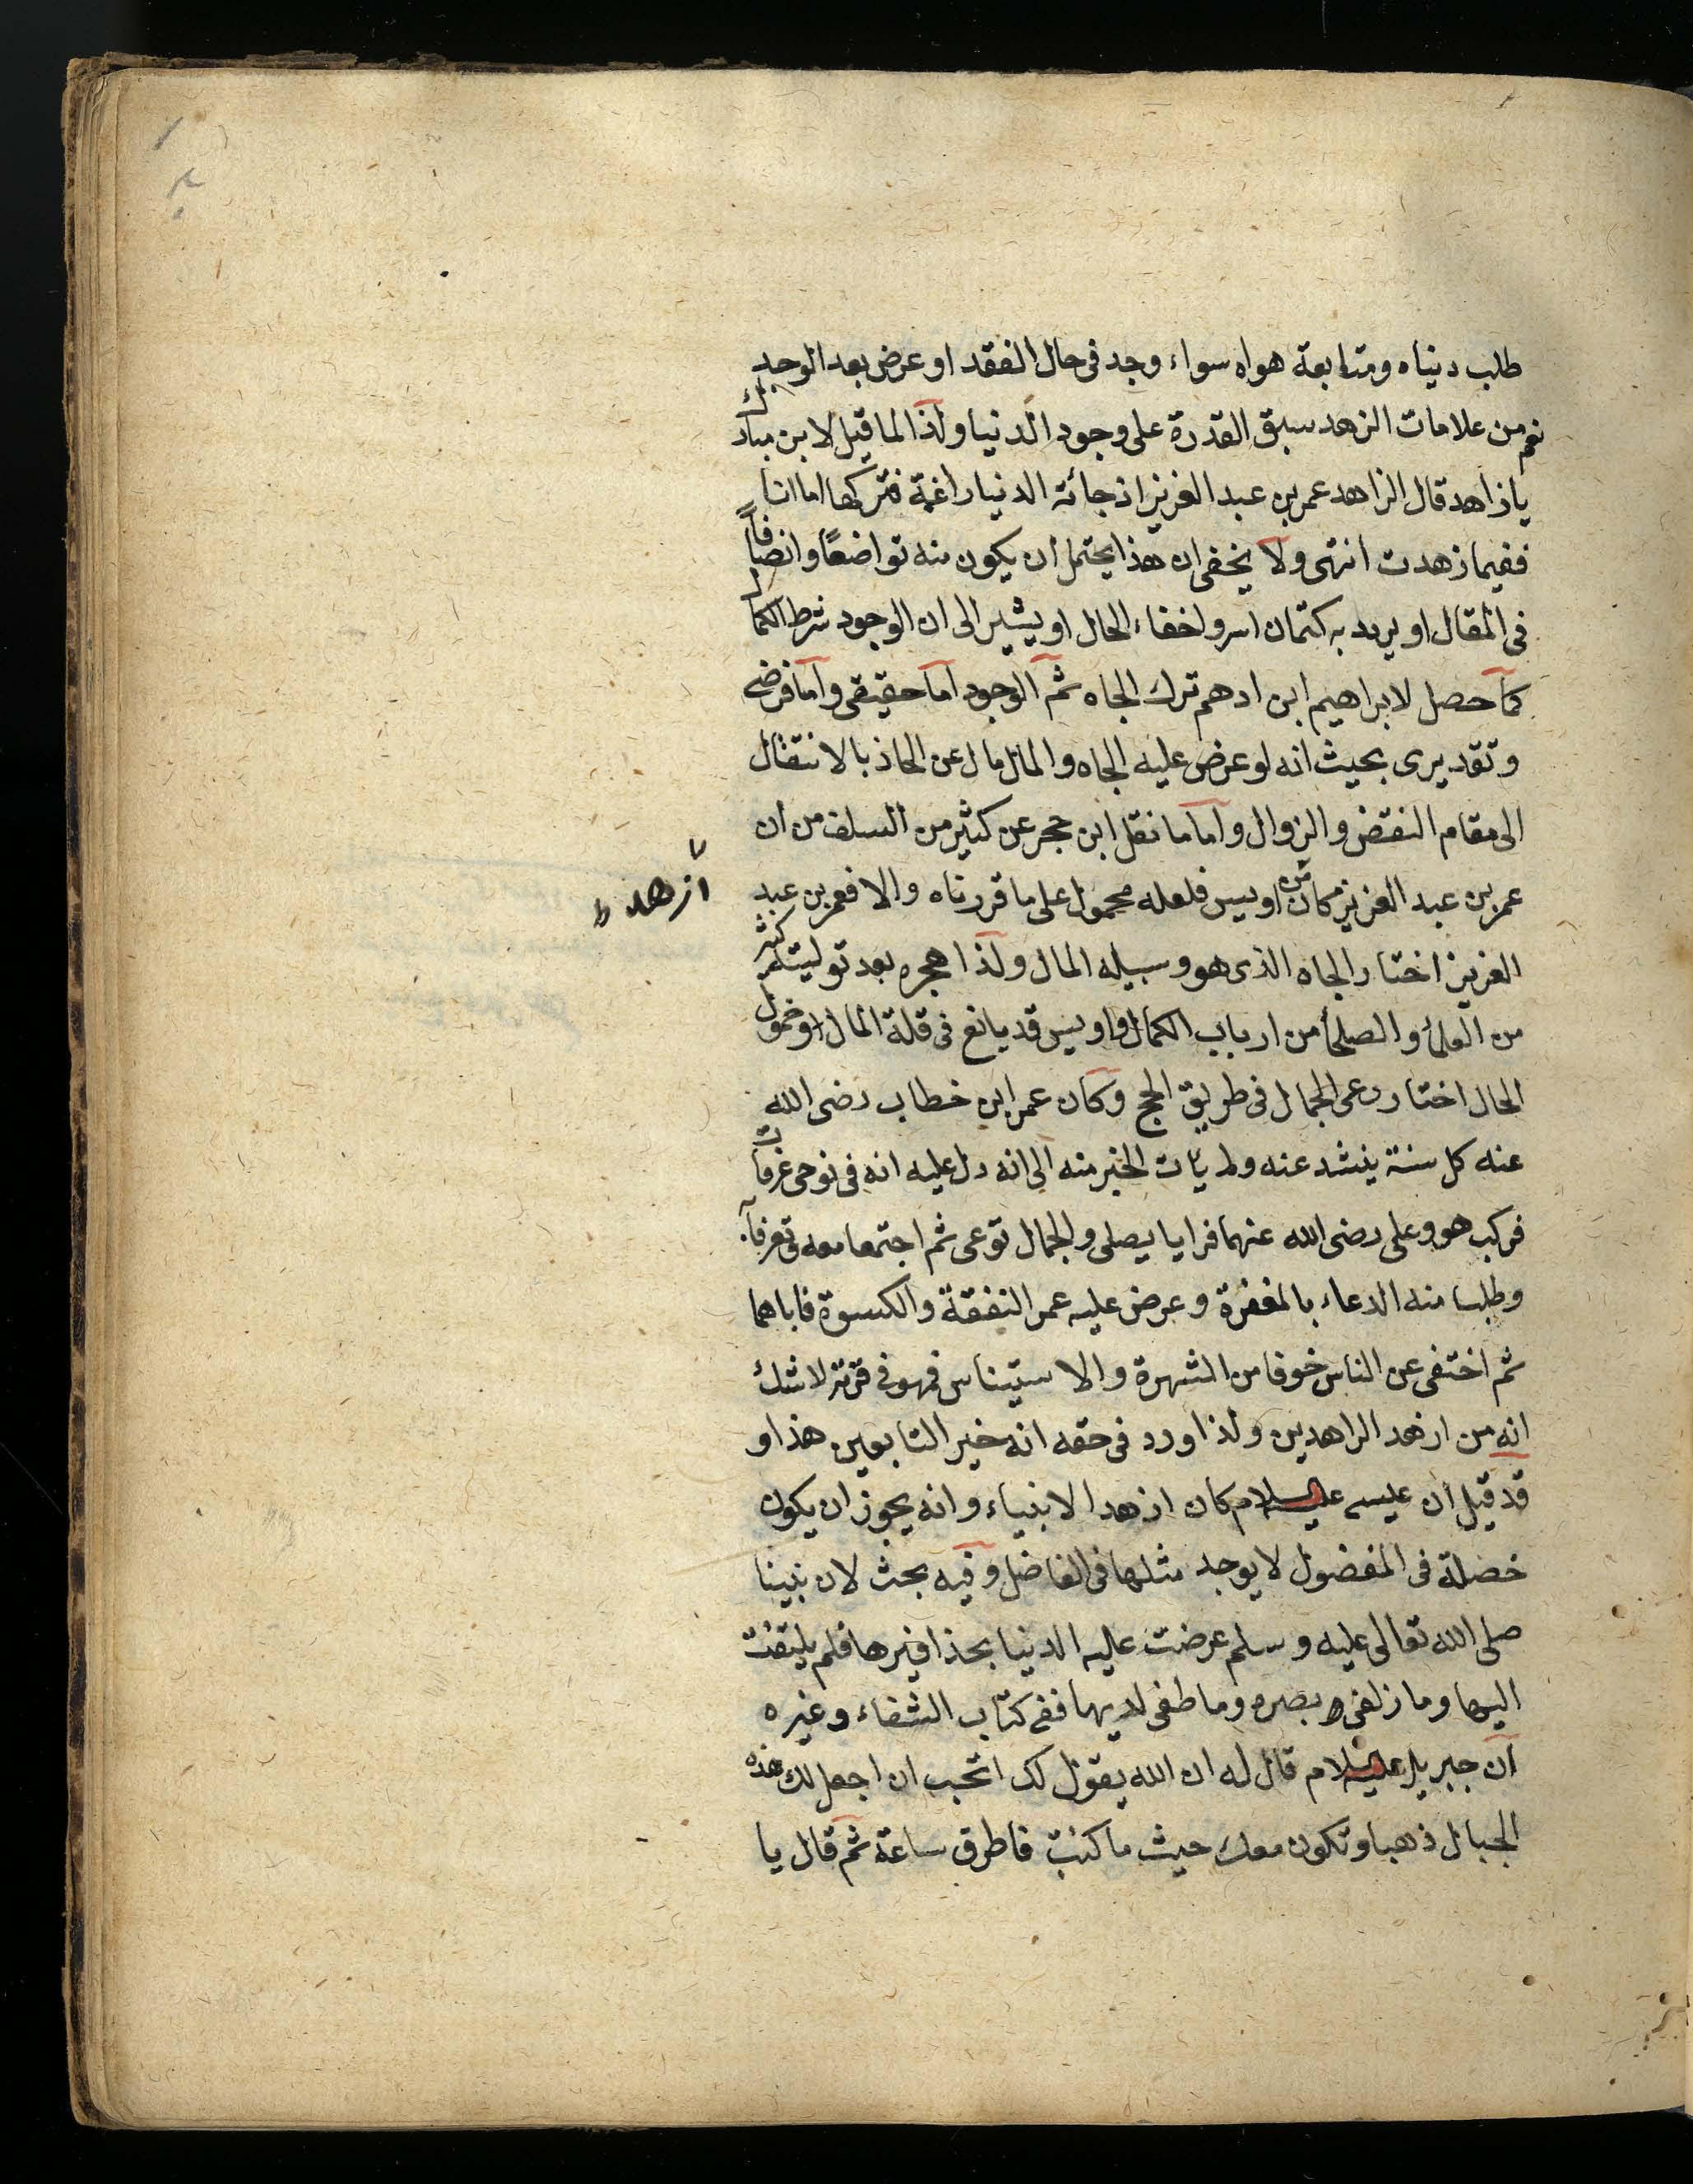 طلب دنياه ومتابعة هواه سواء وجد فى حال الفقد او عرض بعد الوجد
نعم من علامات الزهد سبق القدرة على وجود الدنيا ولذا لما قيل لابن مبارك
يا زاهد قال الزاهد عمر بن عبد العزيز اذ جائته الدنيا راغمة فتركها اما انا
ففيما زهدت انتهى ولا يخفى ان هذا يحتمل ان يكون منه تواضعًا وانصافًا
فى المقال او يريد به كتمان اسر واخفاء الحال او يشير الى ان الوجود شرط الكمال
كما حصل لابراهيم ابن ادهم ترك الجاه ثم الوجود اما حقيقى واما فرضى
وتقديرى بحيث انه لو عرض عليه الجاه والمال مال عن الحاذ بالانتقال
الى مقام النقض والزوال واما ما نقل ابن حجر عن كثير من السلف من ان
عمر بن عبد العزيز كان من اويس فلعله محمول على ما قررناه والا فعمر بن عبد
ازهد
العزيز اختار الجاه الذى هو وسيله المال ولذا هجره بعد توليته كثير
من العلماء والصلحاء من ارباب الكمال واويس قد يانع فى قلة المال او خمول
الحال اختار رعى الجمال فى طريق الحج وكان عمر ابن خطاب رضى الله
عنه كل سنة ينشد عنه ولم يات الخبر منه الى انه دل عليه انه فى نوحى عرفات
فركب هو وعلى رضى الله عنهما فرايا يصلى والجمال توعى ثم اجتمعا معه وتعرفا
وطلبا منه الدعاء بالمغفرة وعرض عليه عمر النفقة والكسوة فاباهما
ثم اختفى عن الناس خوفا من الشهرة والاستيناس فهو فى قرنه لا شك
انه من ازهد الزاهدين ولذا ورد فى حقه انه خير التابعين هذا و
قد قيل ان عيسى عليه السلام كان ازهد الانبياء وانه يجوز ان يكون
خضلة فى المفضول لا يوجد مثلها فى الفاضل وفيه بحث لان نبينا
صلى الله تعالى عليه وسلم عرضت عليه الدنيا بحذافيرها فلم يلتفت
اليها وما زلغى بصره وما طغى لديها ففى كتاب الشفاء وغيره
ان جبريل عليه السلام قال له ان الله يقول لك اتحب ان اجعل لك هذه
الجبال ذهبا وتكون معك حيث ما كنت فاطرق ساعة ثم قال يا